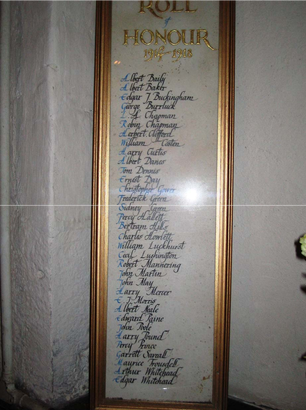 ROLL
of
HONOUR
1914-1918
Albert Baily
Albert Baker
Edgar J Buckingham
George Burrluck
L A Chapman
Robin Chapman
Herbert Clifford
William
Harry Curtis
Albert Danor
Tom Dennis
Ernest Day
Christopher
Frederick Green
Sidney Green
Percy Hallett
Bertram Hills
Charles Howlett
William Luckhurst
Cecil Lushington
Robert Mannering
John Martin
John May
Harry Mercer
E J Morris
Albert
Edward Paine
John Poole
Harry Pound
Percy Prince
Garrett
Maurice
Arthur Whitehead
Edgar Whitehead